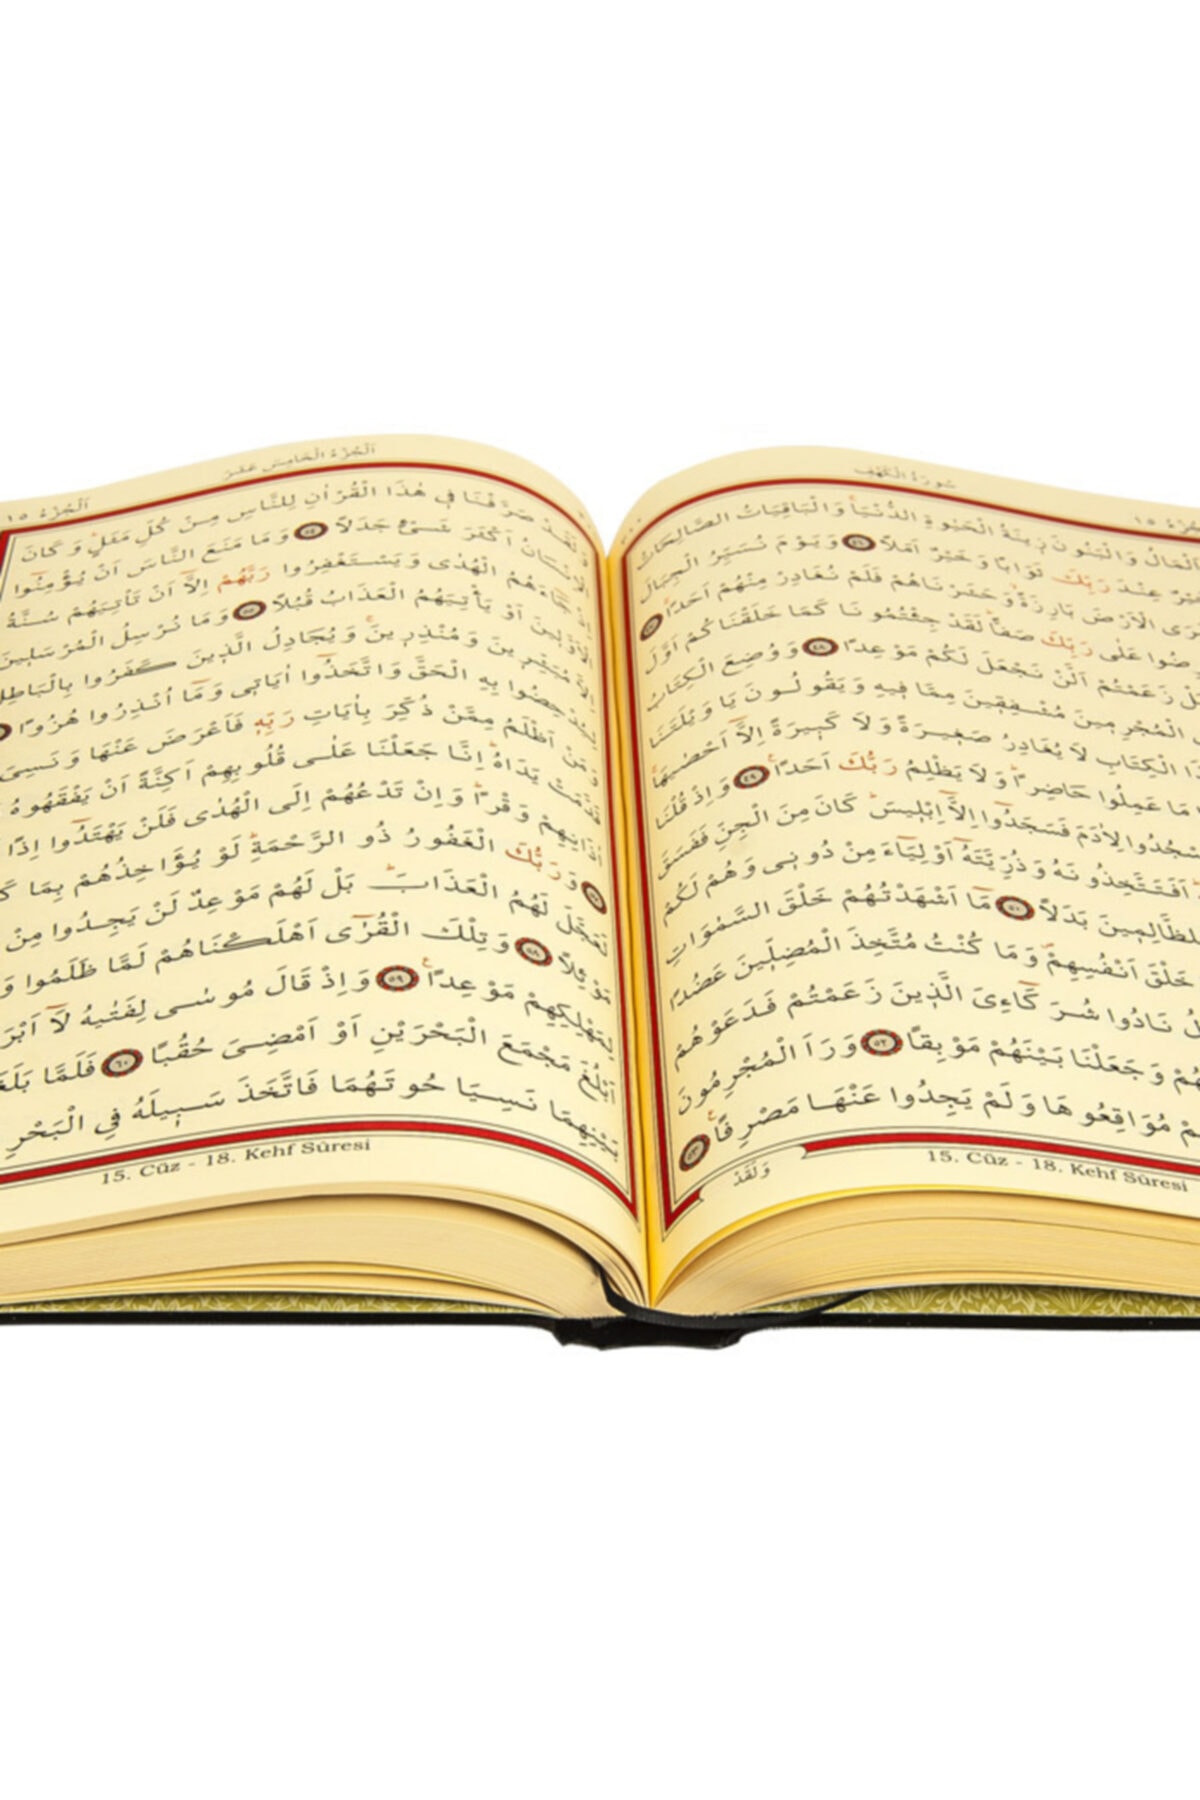 سُورَةُ الْكَهْفِ
اَلْمَالُ وَالْبَنُونَ زٖينَةُ الْحَيٰوةِ الدُّنْيَاۚ وَالْبَاقِيَاتُ الصَّالِحَاتُ
خَيْرٌ عِنْدَ رَبِّكَ ثَوَابًا وَخَيْرٌ اَمَلًا ﴿٤٦﴾ وَيَوْمَ نُسَيِّرُ الْجِبَالَ
وَتَرَى الْاَرْضَ بَارِزَةًۙ وَحَشَرْنَاهُمْ فَلَمْ نُغَادِرْ مِنْهُمْ اَحَدًاۚ ﴿٤٧﴾
عَلٰى رَبِّكَ صَفًّاۜ لَقَدْ جِئْتُمُونَا كَمَا خَلَقْنَاكُمْ اَوَّلَ
زَعَمْتُمْ اَلَّنْ نَجْعَلَ لَكُمْ مَوْعِدًا ﴿٤٨﴾ وَوُضِعَ الْكِتَابُ
الْمُجْرِمٖينَ مُشْفِقٖينَ مِمَّا فٖيهِ وَيَقُولُونَ يَا وَيْلَتَنَا
الْكِتَابِ لَا يُغَادِرُ صَغٖيرَةً وَلَا كَبٖيرَةً اِلَّٓا اَحْصٰيهَاۚ
مَا عَمِلُوا حَاضِرًاۜ وَلَا يَظْلِمُ رَبُّكَ اَحَدًاۚ ﴿٤٩﴾ وَاِذْ قُلْنَا
اسْجُدُوا لِاٰدَمَ فَسَجَدُٓوا اِلَّٓا اِبْلٖيسَۜ كَانَ مِنَ الْجِنِّ فَفَسَقَ
اَفَتَتَّخِذُونَهُ وَذُرِّيَّتَهُٓ اَوْلِيَٓاءَ مِنْ دُونٖى وَهُمْ لَكُمْ
لِلظَّالِمٖينَ بَدَلًا ﴿٥٠﴾ مَٓا اَشْهَدْتُهُمْ خَلْقَ السَّمٰوَاتِ
خَلْقَ اَنْفُسِهِمْۖ وَمَا كُنْتُ مُتَّخِذَ الْمُضِلّٖينَ عَضُدًا
نَادُوا شُرَكَٓاءِىَ الَّذٖينَ زَعَمْتُمْ فَدَعَوْهُمْ
وَجَعَلْنَا بَيْنَهُمْ مَوْبِقًا ﴿٥٢﴾ وَرَاَ الْمُجْرِمُونَ
مُوَاقِعُوهَا وَلَمْ يَجِدُوا عَنْهَا مَصْرِفًاۚ ﴿٥٣﴾
وَلَقَدْ
15. Cüz - 18. Kehf Sûresi
اَلْجُزْءُ الْخَامِسَ عَشَرَ
اَلْجُزْءُ ١٥
وَلَقَدْ صَرَّفْنَا فٖى هٰذَا الْقُرْاٰنِ لِلنَّاسِ مِنْ كُلِّ مَثَلٍۜ وَكَانَ
الْاِنْسَانُ اَكْثَرَ شَىْءٍ جَدَلًا ﴿٥٤﴾ وَمَا مَنَعَ النَّاسَ اَنْ يُؤْمِنُٓوا
اِذْ جَٓاءَهُمُ الْهُدٰى وَيَسْتَغْفِرُوا رَبَّهُمْ اِلَّٓا اَنْ تَأْتِيَهُمْ سُنَّةُ
الْاَوَّلٖينَ اَوْ يَأْتِيَهُمُ الْعَذَابُ قُبُلًا ﴿٥٥﴾ وَمَا نُرْسِلُ الْمُرْسَلٖينَ
اِلَّا مُبَشِّرٖينَ وَمُنْذِرٖينَۚ وَيُجَادِلُ الَّذٖينَ كَفَرُوا بِالْبَاطِلِ
لِيُدْحِضُوا بِهِ الْحَقَّ وَاتَّخَذُٓوا اٰيَاتٖى وَمَٓا اُنْذِرُوا هُزُوًا
وَمَنْ اَظْلَمُ مِمَّنْ ذُكِّرَ بِاٰيَاتِ رَبِّهٖ فَاَعْرَضَ عَنْهَا وَنَسِىَ
مَا قَدَّمَتْ يَدَاهُۜ اِنَّا جَعَلْنَا عَلٰى قُلُوبِهِمْ اَكِنَّةً اَنْ يَفْقَهُوهُ
اٰذَانِهِمْ وَقْرًاۜ وَاِنْ تَدْعُهُمْ اِلَى الْهُدٰى فَلَنْ يَهْتَدُٓوا اِذًا
وَرَبُّكَ الْغَفُورُ ذُو الرَّحْمَةِۜ لَوْ يُؤَاخِذُهُمْ بِمَا
لَعَجَّلَ لَهُمُ الْعَذَابَۜ بَلْ لَهُمْ مَوْعِدٌ لَنْ يَجِدُوا مِنْ
مَوْئِلًا ﴿٥٨﴾ وَتِلْكَ الْقُرٰٓى اَهْلَكْنَاهُمْ لَمَّا ظَلَمُوا
لِمَهْلِكِهِمْ مَوْعِدًاۚ ﴿٥٩﴾ وَاِذْ قَالَ مُوسٰى لِفَتٰيهُ لَٓا اَبْرَ
اَبْلُغَ مَجْمَعَ الْبَحْرَيْنِ اَوْ اَمْضِىَ حُقُبًا ﴿٦٠﴾ فَلَمَّا بَلَغَا
بَيْنِهِمَا نَسِيَا حُوتَهُمَا فَاتَّخَذَ سَبٖيلَهُ فِى الْبَحْرِ
15. Cüz - 18. Kehf Sûresi